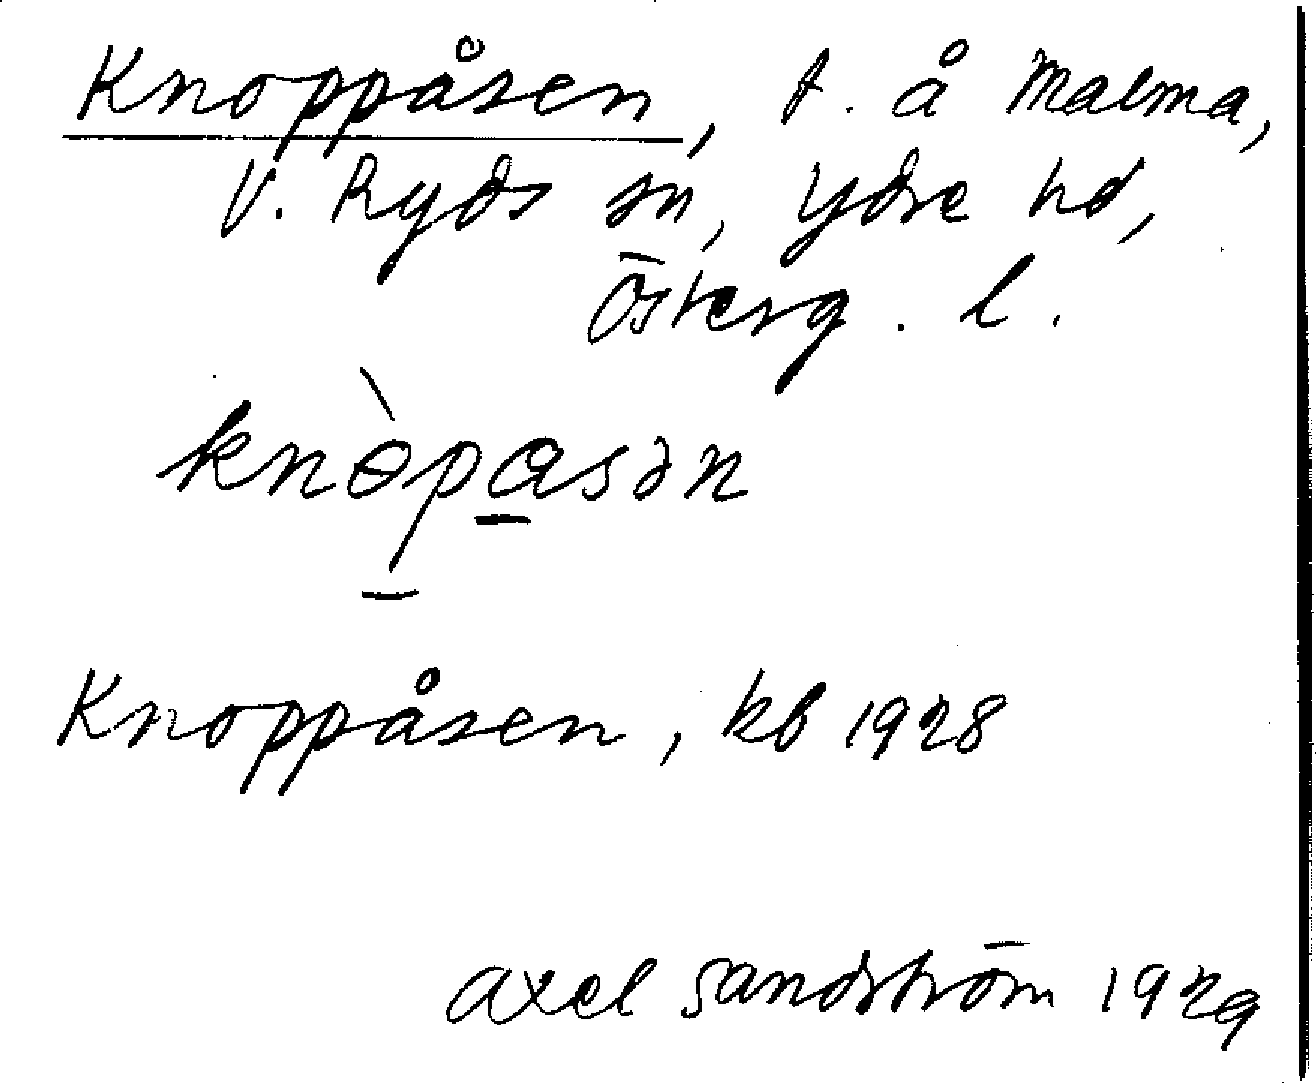 Knoppåsen, t. å Malma,
V. Ryds sn, Ydre hd,
Österg. l.
knɵ̀p̲a̲sən
Knoppåsen, kb 1928
Axel Sandström 1929